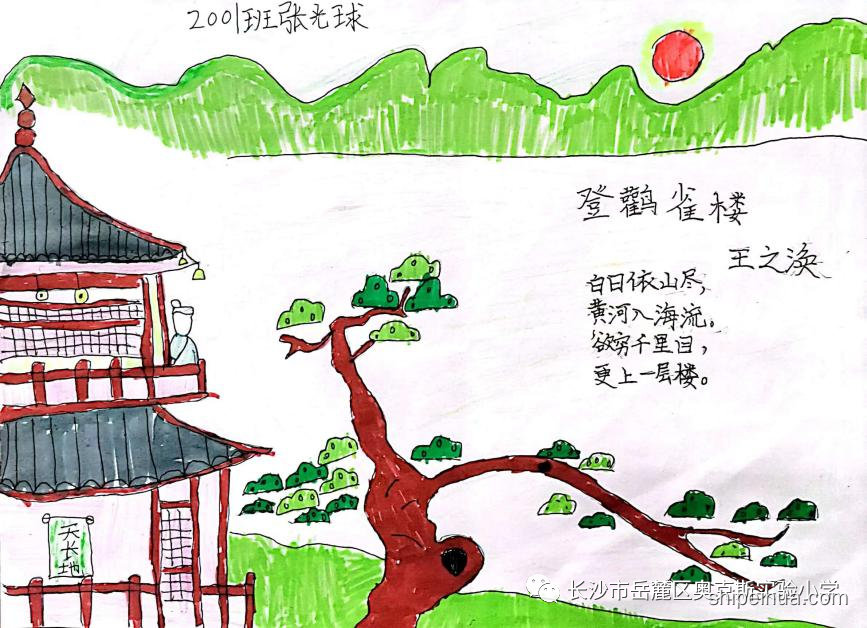 2001班张光球
登鹳雀楼
王之涣
白日依山尽，
黄河入海流。
欲穷千里目，
更上一层楼。
天长地
长沙市岳麓区奥克斯实验小学
shipeihua.com